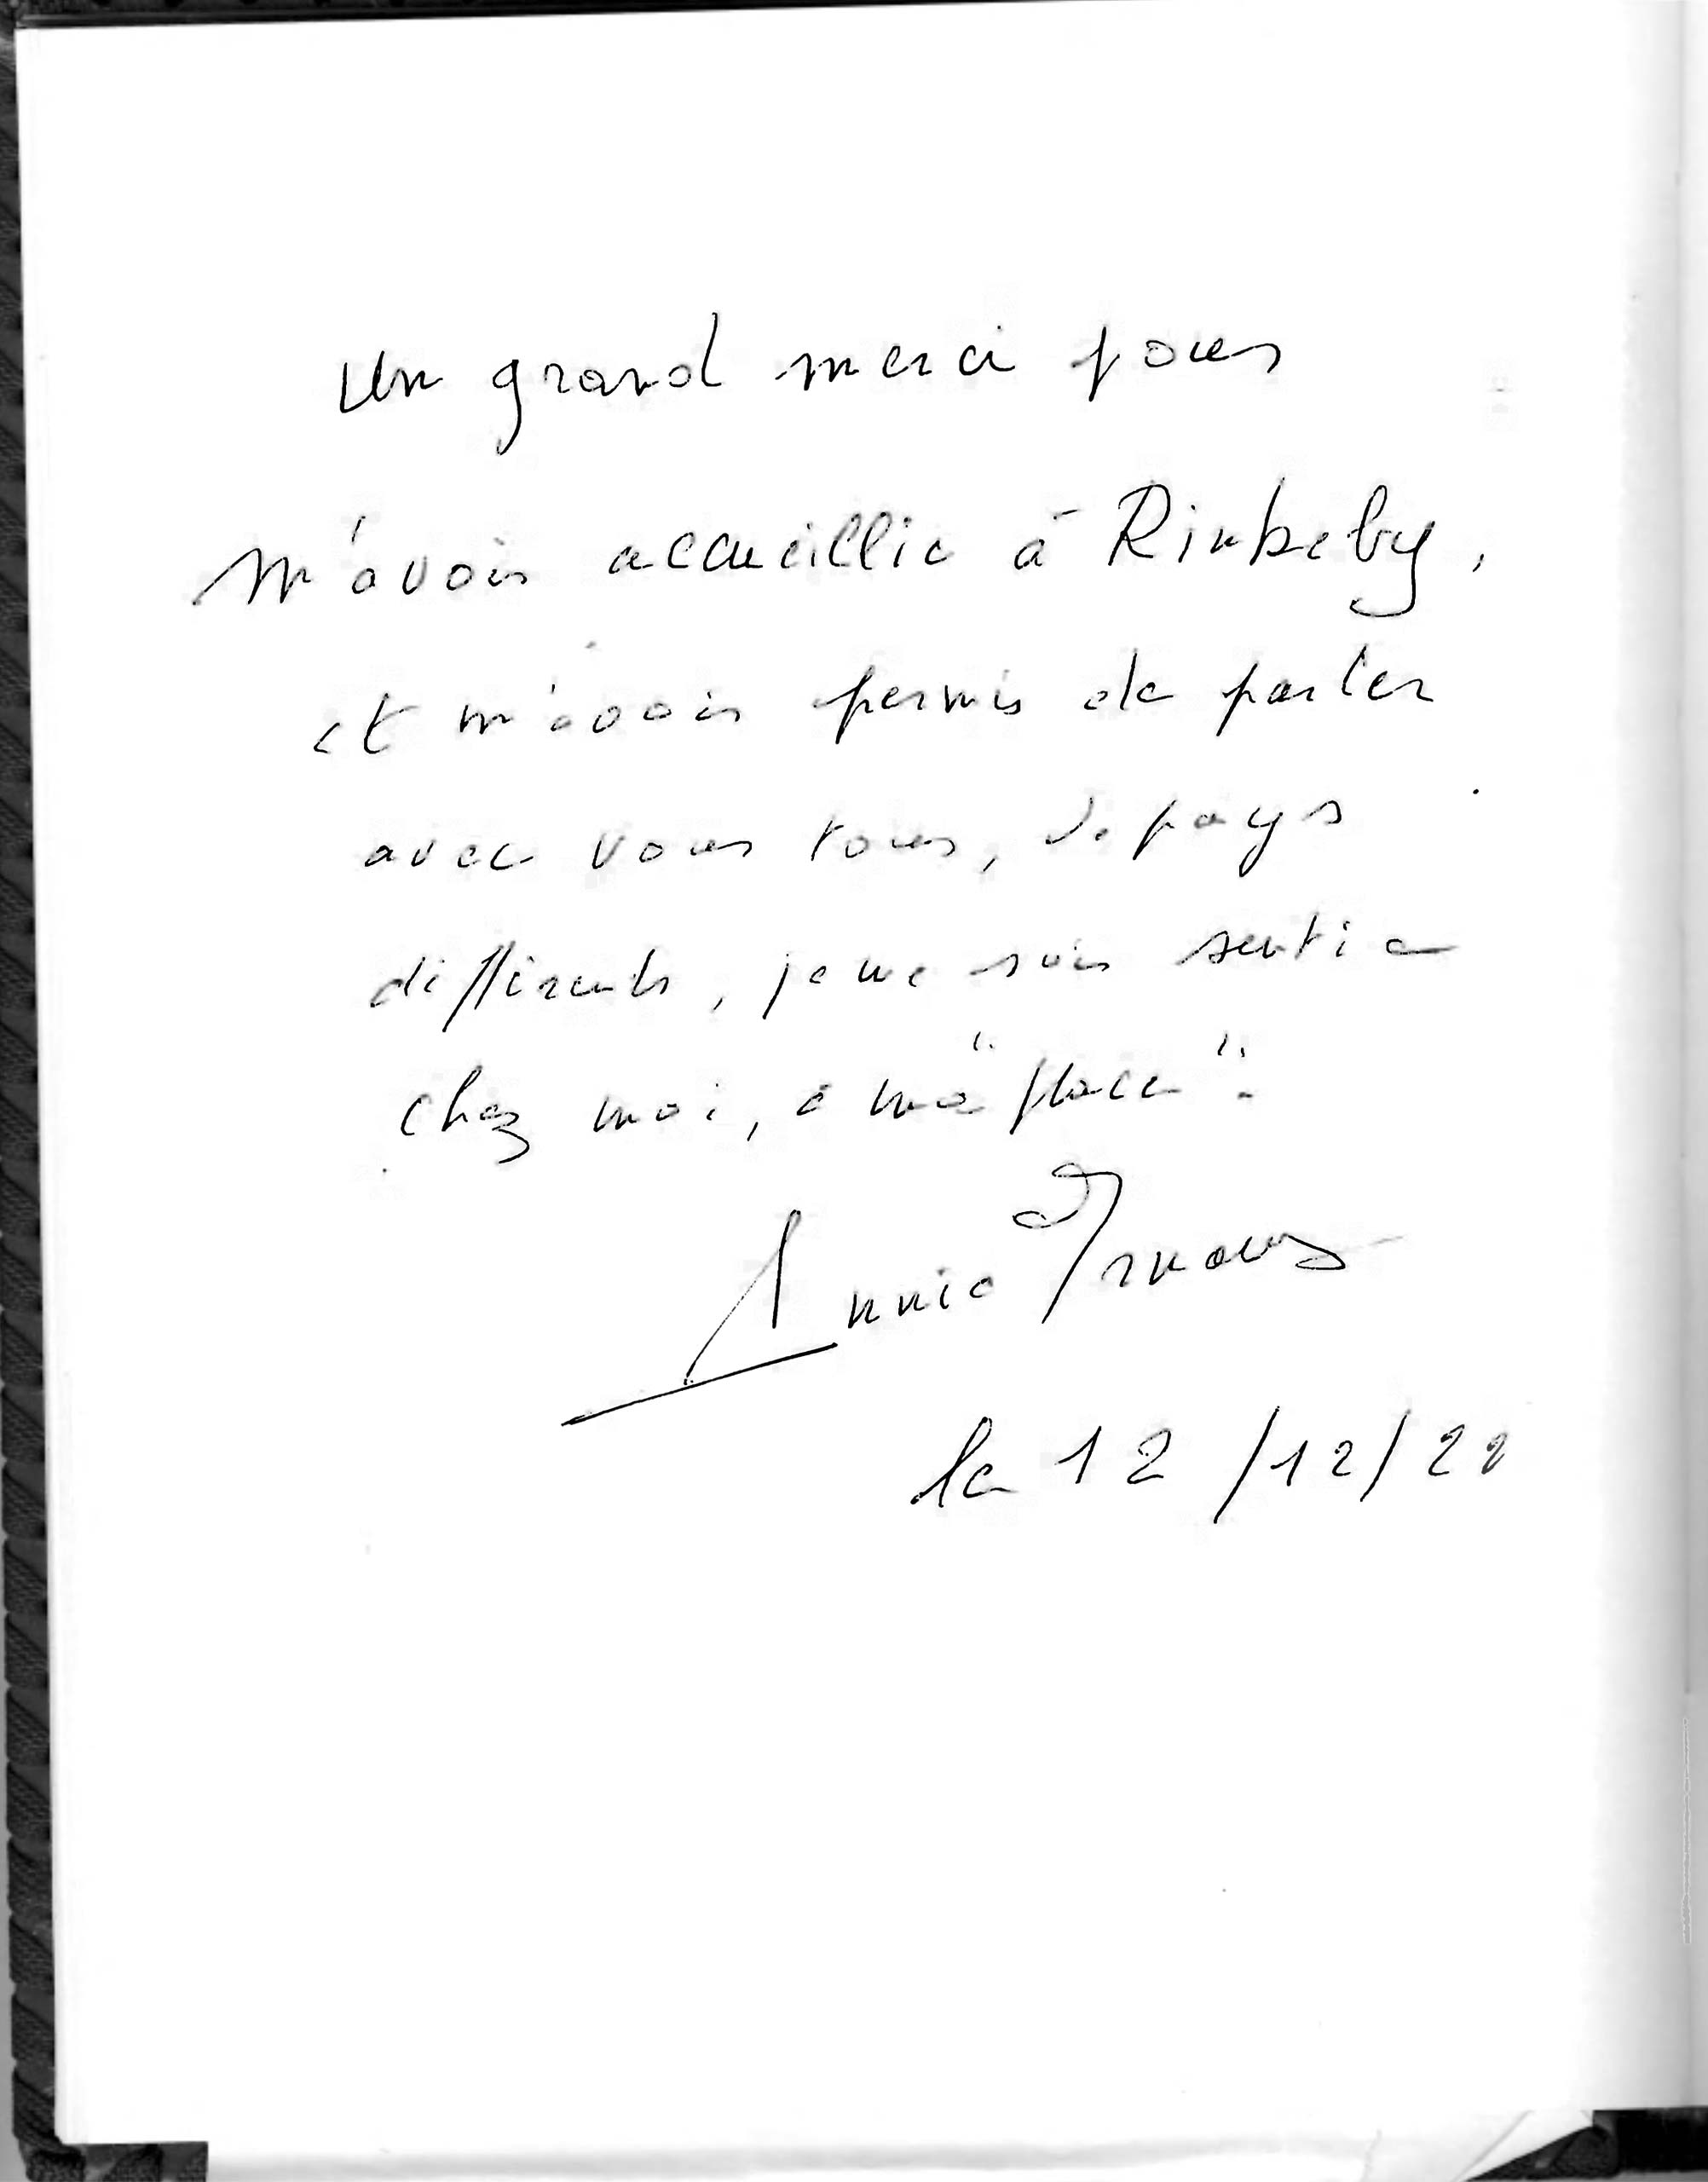 Un grand merci pour
m'avoir accueillie à Rinkeby,
et m'avoir permis de parler
avec vous tous, de pays
différents, je me suis sentie
chez moi, à ma "place".
Annie Ernaux
le 12/12/22